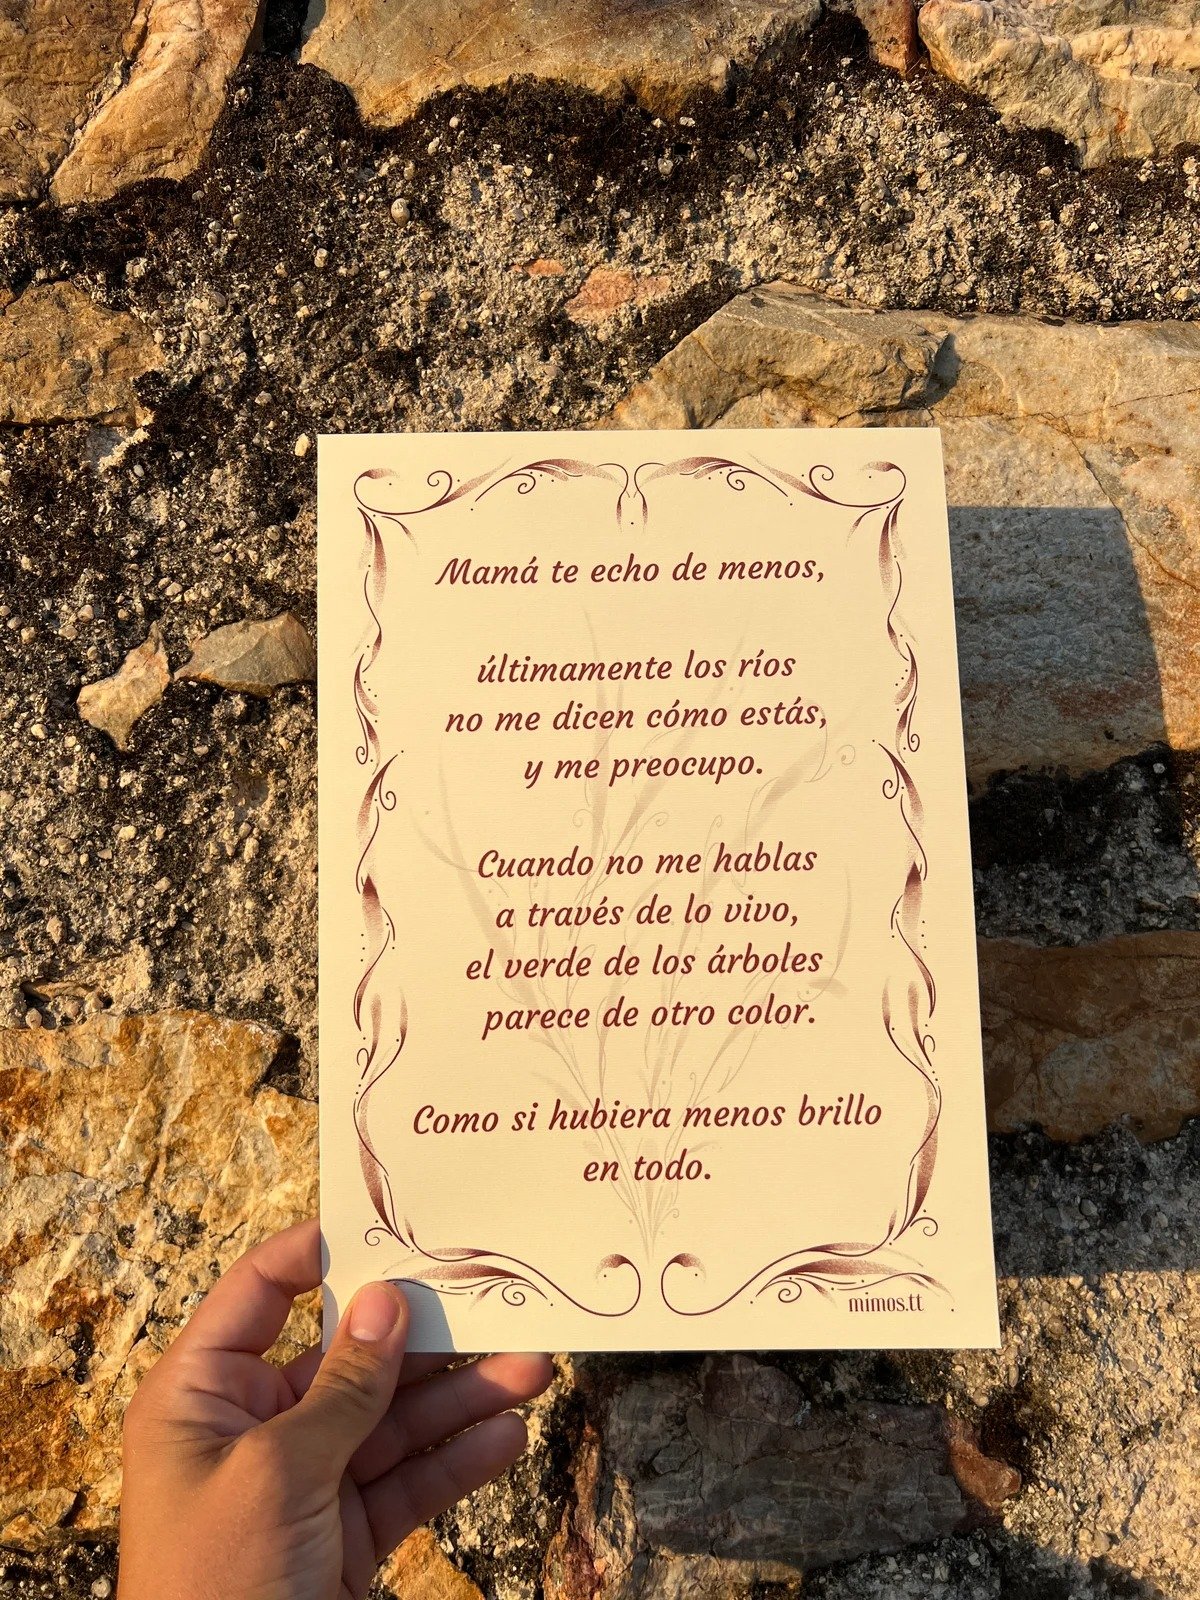 Mamá te echo de menos,
últimamente los ríos
no me dicen cómo estás,
y me preocupo.
Cuando no me hablas
a través de lo vivo,
el verde de los árboles
parece de otro color.
Como si hubiera menos brillo
en todo.
mimos.tt